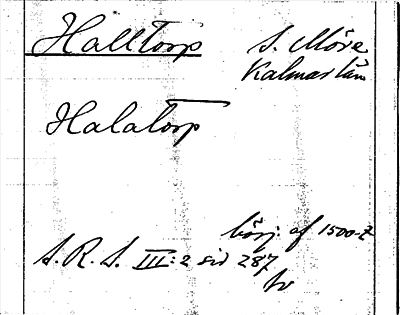 Halltorp S. Möre
Kalmar län
Halatorp
börj. af 1500-t
S.R.S. III:2 sid 287